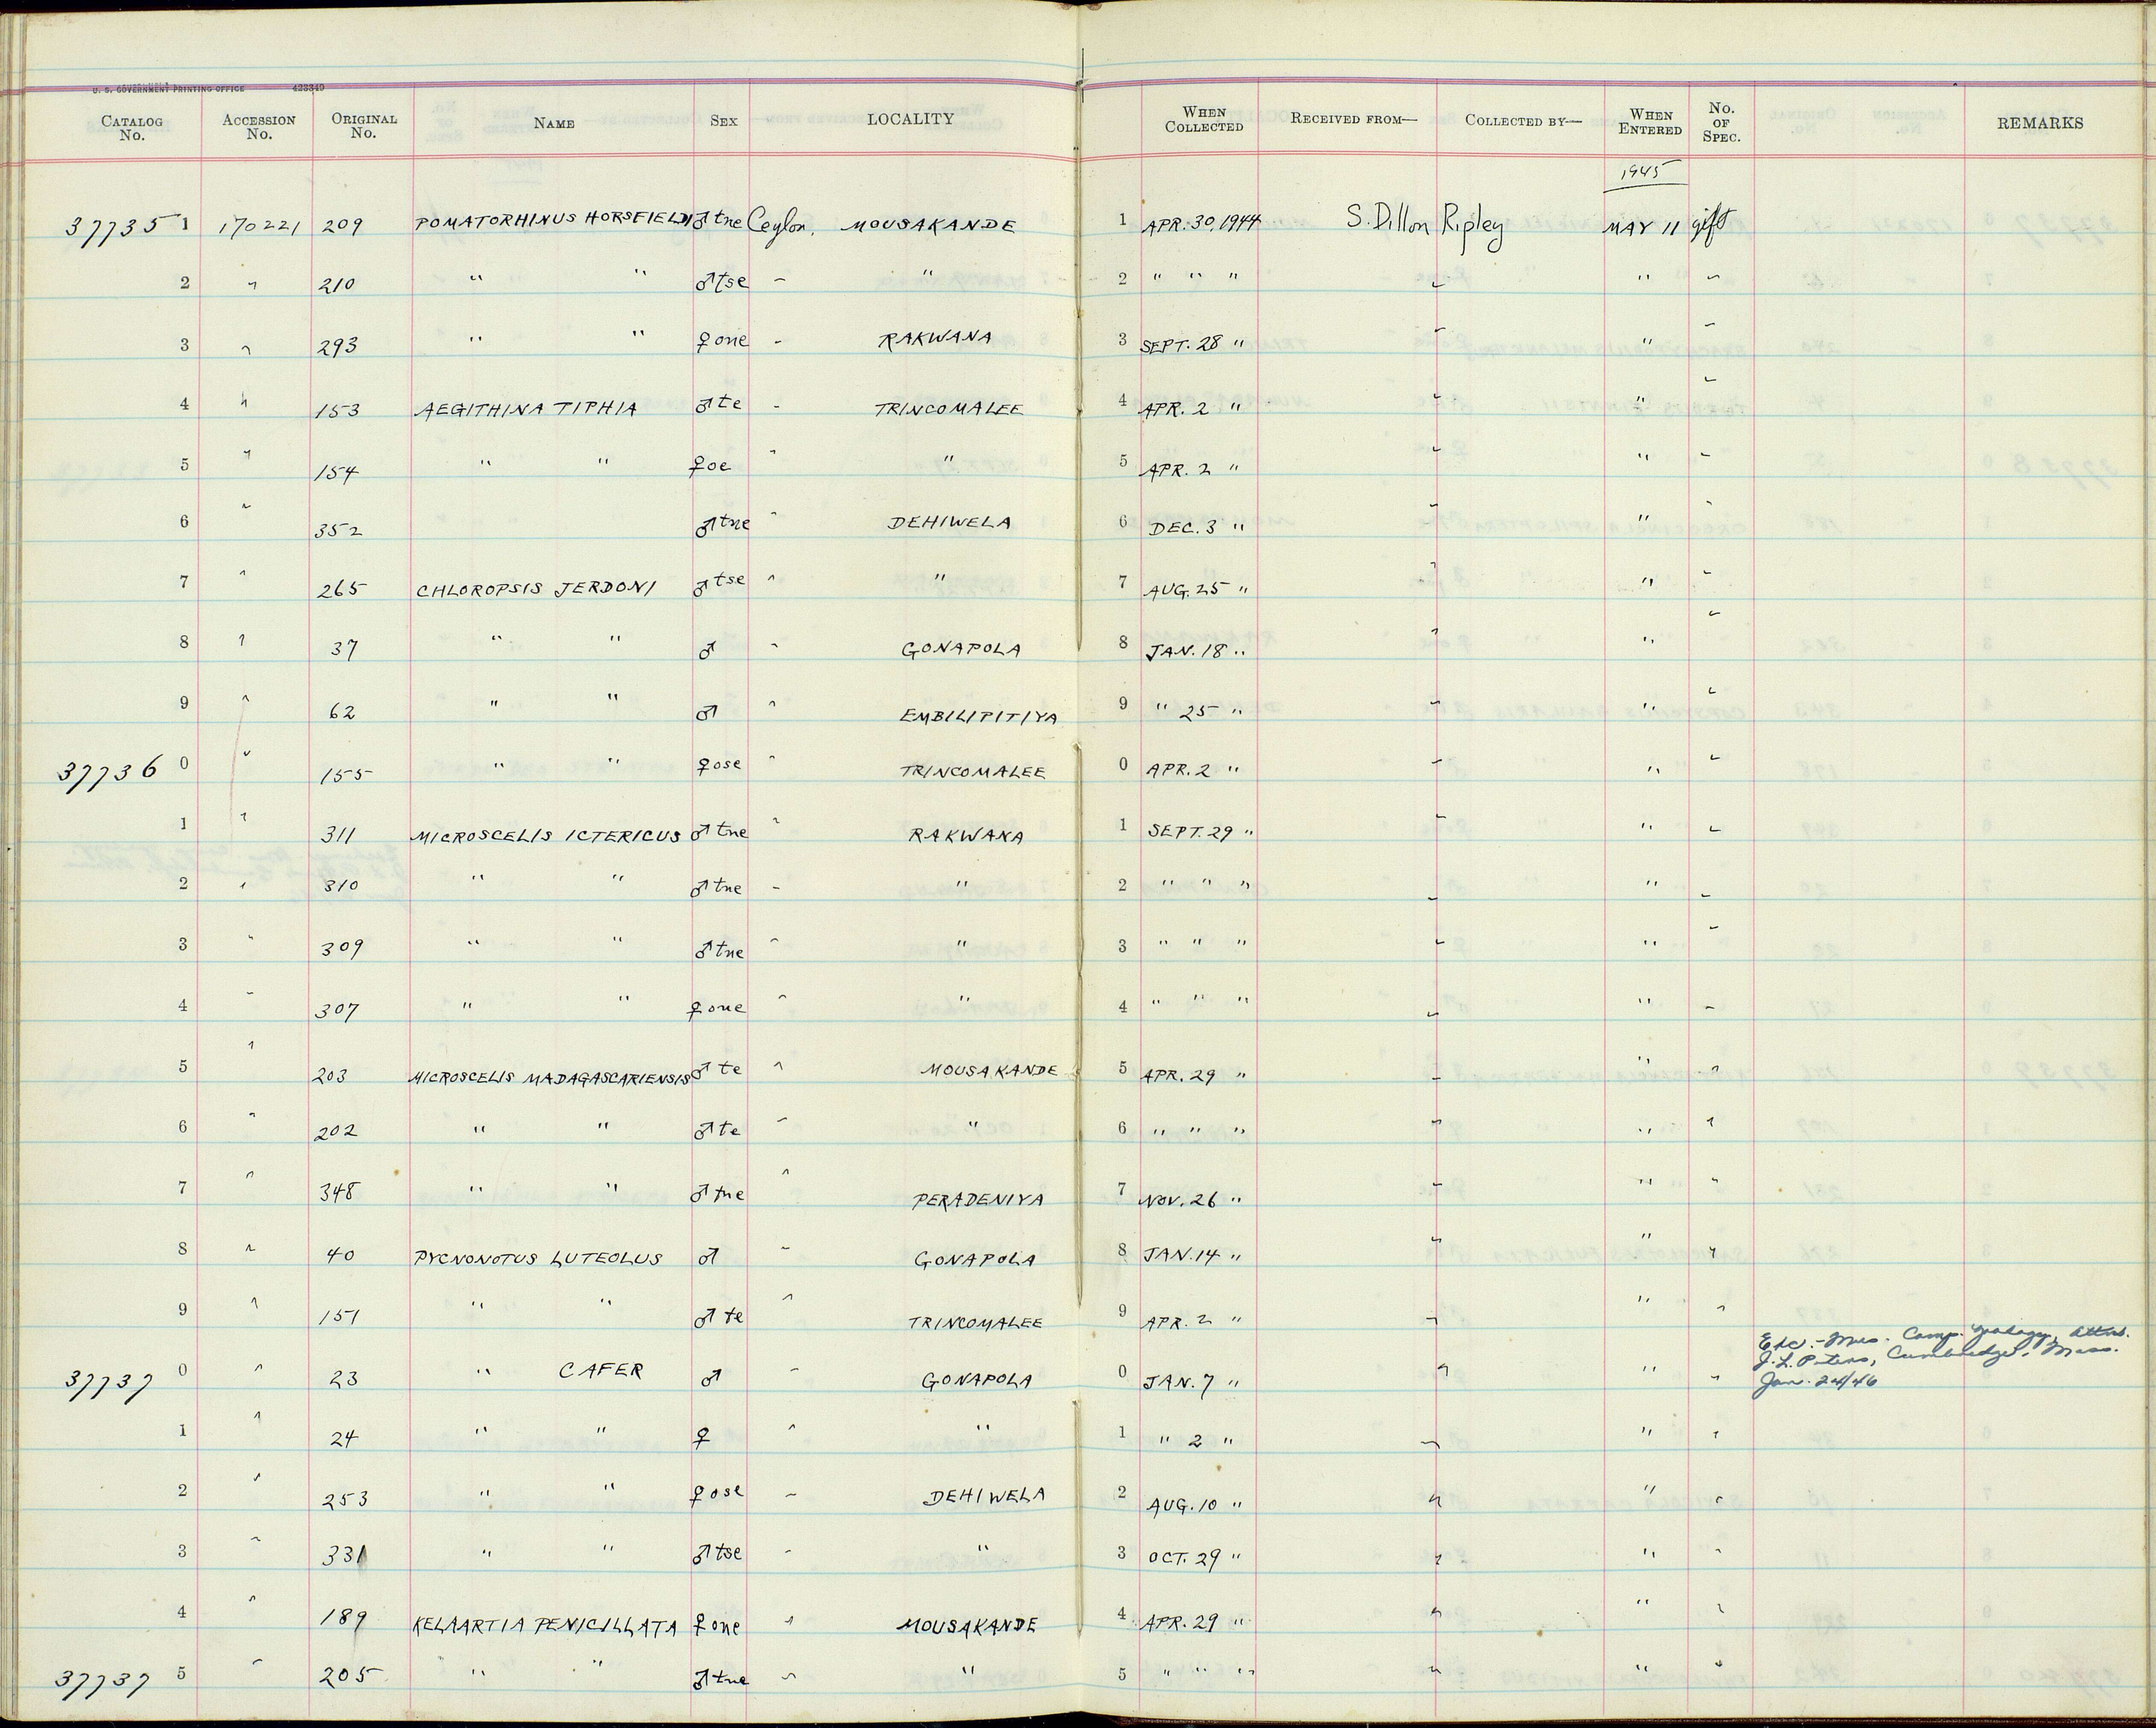 U. S. GOVERNMENT PRINTING OFFICE 423340
CATALOG No. ACCESSION No. ORIGINAL No. NAME SEX LOCALITY WHEN COLLECTED RECEIVED FROM— COLLECTED BY— WHEN ENTERED No. OF SPEC. REMARKS
1945
37735 1 170221 209 POMATORHINUS HORSFIELDI ♂ tne Ceylon, MOUSAKANDE 1 APR. 30, 1944 S. Dillon Ripley MAY 11 gift
2 " 210 " " ♂ tse " " 2 " " " " " "
3 " 293 " " ♀ one " RAKWANA 3 SEPT. 28 " " " "
4 " 153 AEGITHINA TIPHIA ♂ te " TRINCOMALEE 4 APR. 2 " " " "
5 " 154 " " ♀ oe " " 5 APR. 2 " " " "
6 " 352 ♂ tne " DEHIWELA 6 DEC. 3 " " " "
7 " 265 CHLOROPSIS JERDONI ♂ tse " " 7 AUG. 25 " " " "
8 " 37 " " ♂ " GONAPOLA 8 JAN. 18 " " " "
9 " 62 " " ♂ " EMBILIPITIYA 9 " 25 " " " "
37736 0 " 155 " " ♀ ose " TRINCOMALEE 0 APR. 2 " " " "
1 " 311 MICROSCELIS ICTERICUS ♂ tne " RAKWANA 1 SEPT. 29 " " " "
2 " 310 " " ♂ tne " " 2 " " " " " "
3 " 309 " " ♂ tne " " 3 " " " " " "
4 " 307 " " ♀ one " " 4 " " " " " "
5 " 203 MICROSCELIS MADAGASCARIENSIS ♂ te " MOUSAKANDE 5 APR. 29 " " " "
6 " 202 " " ♂ te " " 6 " " " " " "
7 " 348 " " ♂ tne " PERADENIYA 7 NOV. 26 " " " "
8 " 40 PYCNONOTUS LUTEOLUS ♂ " GONAPOLA 8 JAN. 14 " " " "
9 " 151 " " ♂ te " TRINCOMALEE 9 APR. 2 " " " "
37737 0 " 23 " CAFER ♂ " GONAPOLA 0 JAN. 7 " " " " Exc. - Mus. Comp. Zoology, Attn.
J. L. Peters, Cambridge, Mass.
Jan. 24/46
1 " 24 " " ♀ " " 1 " 2 " " " "
2 " 253 " " ♀ ose " DEHIWELA 2 AUG. 10 " " " "
3 " 331 " " ♂ tse " " 3 OCT. 29 " " " "
4 " 189 KELAARTIA PENICILLATA ♀ one " MOUSAKANDE 4 APR. 29 " " " "
37737 5 " 205 " " ♂ tne " " 5 " " " " " "